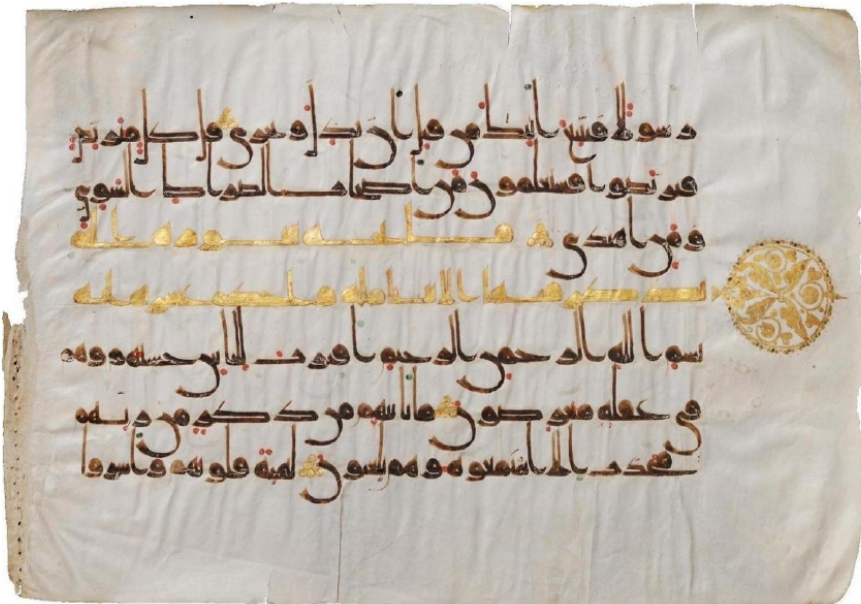 رسولا فنتبع ايتك من قبل ان نذل ونخزى قل كل متربص
فتربصوا فستعلمون من اصحب الصرط السوي
ومن اهتدى فاتحة سورة
ذكر فيها الانبيا مايه
بسم الله الرحمن الرحيم اقترب للناس حسبهم وهم
في غفلة معرضون ما ياتيهم من ذكر من ربهم
محدث الا استمعوه وهم يلعبون لهية قلوبهم واسروا